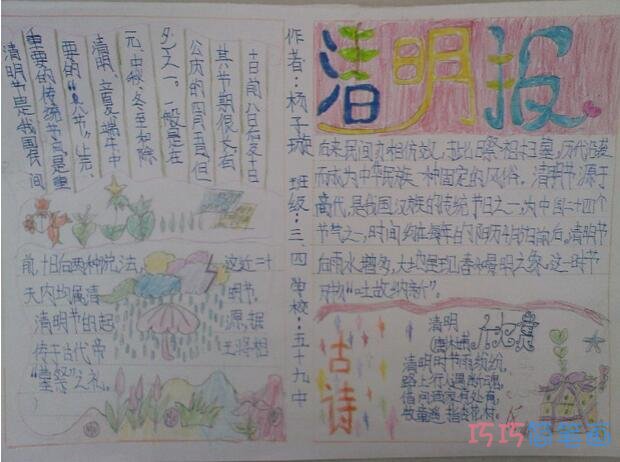 清明报
作者：杨子璇 班级：三、四 学校：五十九中
后来民间亦相仿效，于此日祭祖扫墓，历代沿袭
而成为中华民族一种固定的风俗。清明节源于
商代，是我国汉族的传统节日之一，为中国二十四个
节气之一，时间约在每年的阳历4月5日前后。清明节
后雨水增多，大地呈现春和景明之象。这一时节
万物“吐故纳新”
清明节是我国民间
重要的传统节日是重
要的“八节”上元
清明、立夏、端午、中
元、中秋、冬至和除
夕之一。一般是在
公历的四月五日，但
其节期很长，有
十日前八日后及十日
前十日后两种说法，这近二十
天内均属清明节。
清明节的起源，据
传于古代帝王将相
“墓祭”之礼。
古诗
清明
清明时节雨纷纷，
路上行人欲断魂，
借问酒家何处有，
牧童遥指杏花村。
巧巧简笔画